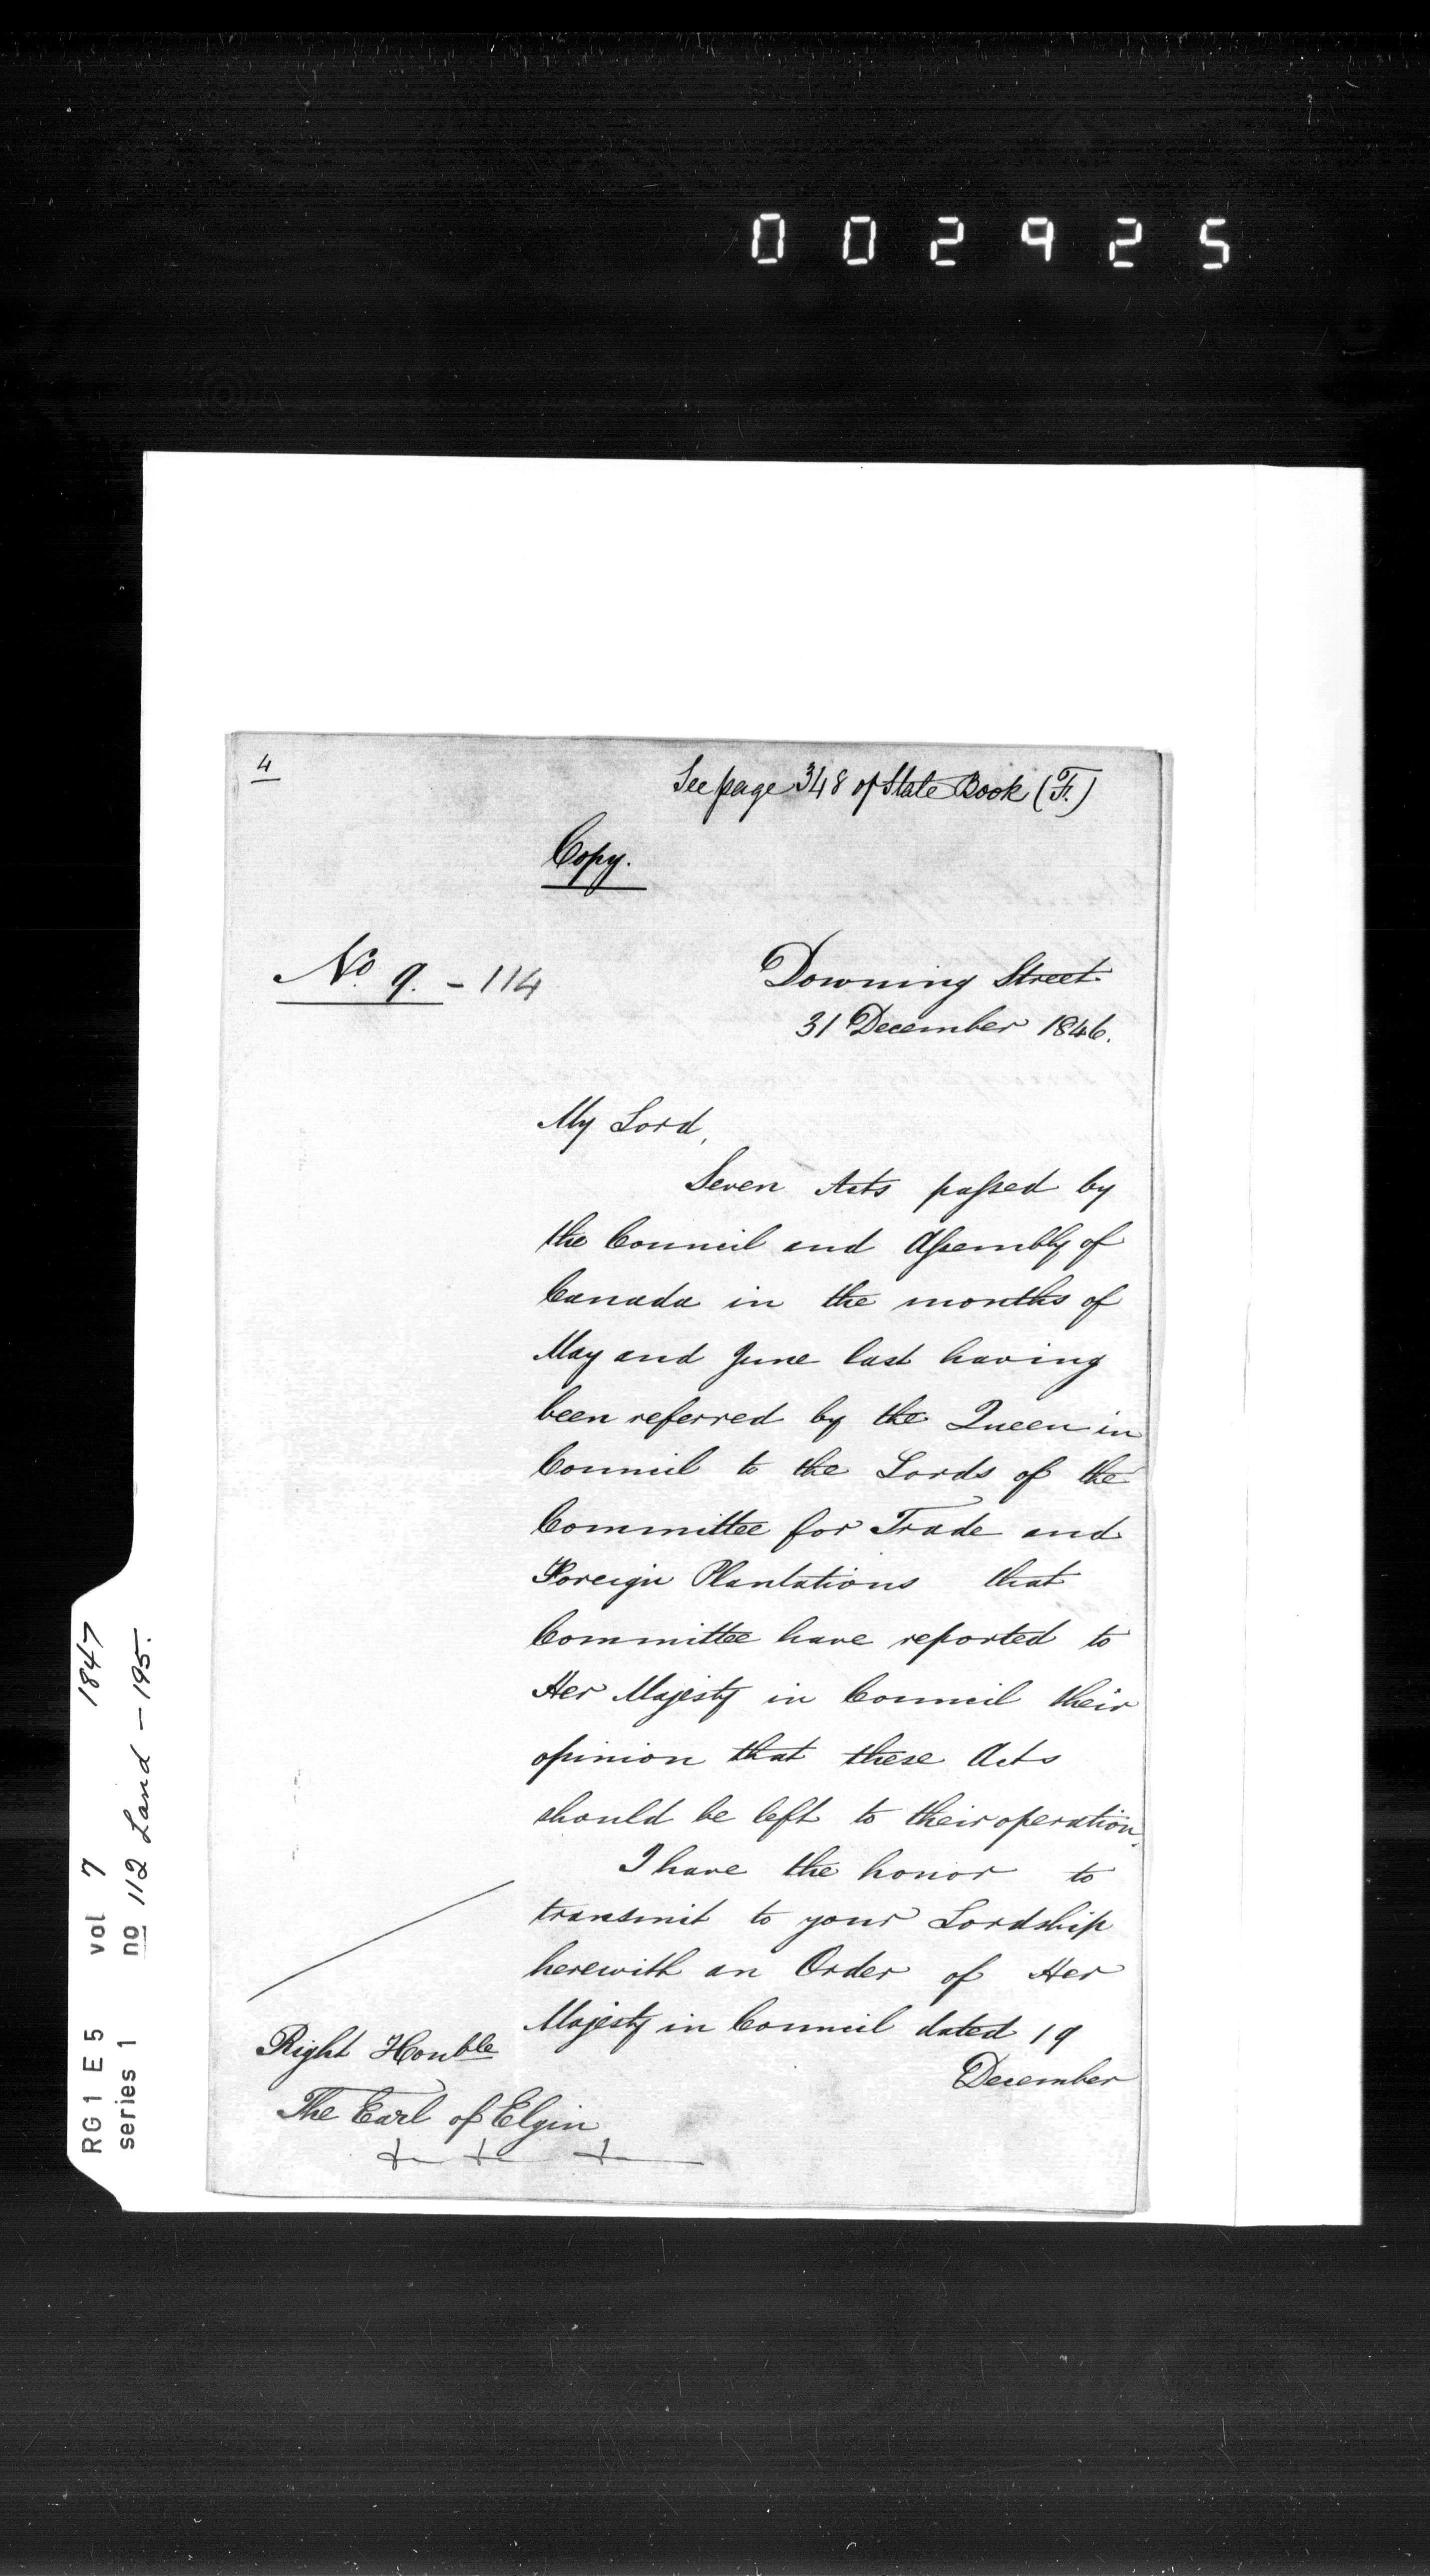 002925
4
See page 348 of State Book (F.)
Copy.
No. 9. - 114
Downing Street
31 December 1846.
My Lord,
Seven Acts passed by
the Council and Assembly of
Canada in the months of
May and June last having
been referred by the Queen in
Council to the Lords of the
Committee for Trade and
Foreign Plantations that
Committee have reported to
Her Majesty in Council their
opinion that these Acts
should be left to their operation.
I have the honor to
transmit to your Lordship
herewith an Order of Her
Majesty in Council dated 19
December
Right Honble
The Earl of Elgin
RG1 E5 vol 7 1847
series 1 no 112 Land - 195.